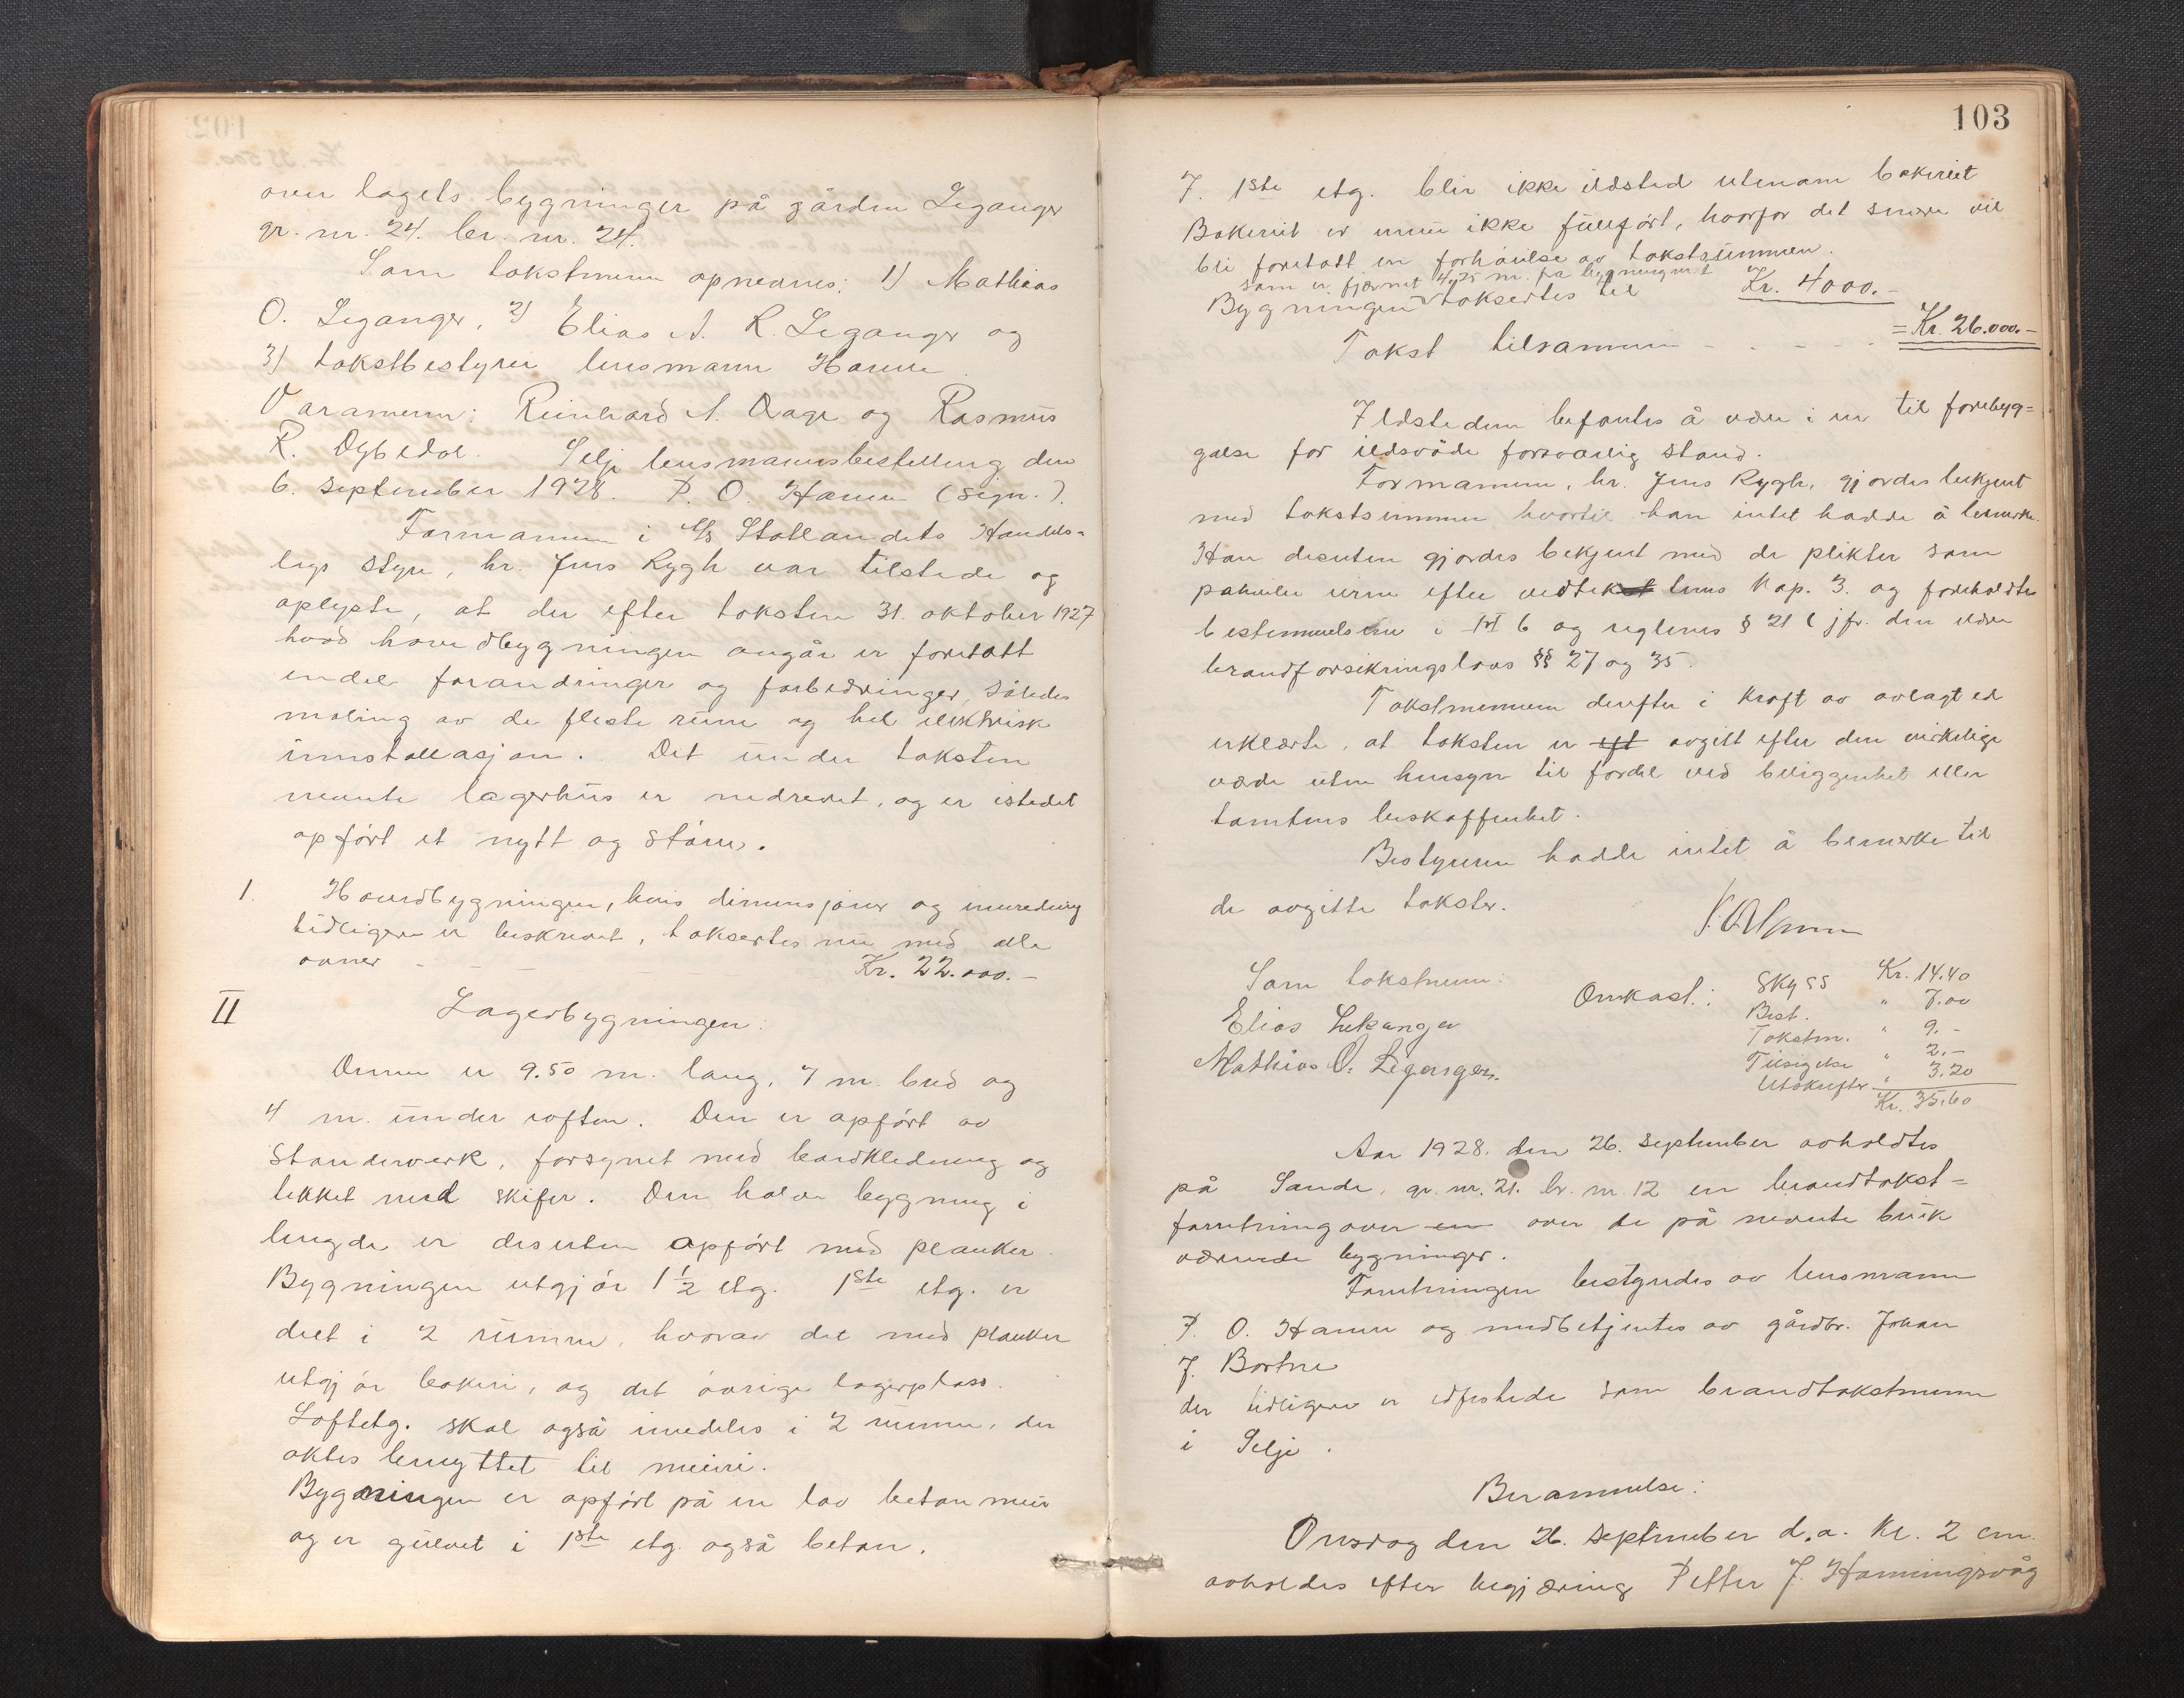 over lagets bygninger på gården Leganger
gr. nr. 24. br. nr. 24.
Som takstmenn opnevnes: 1) Mathias
O. Leganger, 2) Elias A. R. Leganger og
3) takstbestyrer lensmann Hamre.
Varamenn: Reinhard A. Aage og Rasmus
R. Dybedal. Selje lensmannsbestilling den
6. september 1928. P. O. Hamre (sign.).
Formannen i A/s Statlandets Handels-
lags styre, hr. Jens Rygh var tilstede og
oplyste, at der efter taksten 31. oktober 1927
hvad hovedbygningen angår er foretatt
endel forandringer og forbedringer, således
maling av de fleste rum og hel elektrisk
innstallasjon. Det under taksten
nevnte lagerhus er nedrevet, og er istedet
opført et nytt og større.
1. Hovedbygningen, hvis dimensjoner og innredning
tidligere er beskrevet, taksertes nu med alle
ovner - - - Kr. 22.000.-
II Lagerbygningen:
Denne er 9.50 m. lang, 7 m. bred og
4 m. under roften. Den er opført av
standerverk, forsynet med bordkledning og
tekket med skifer. Den halve bygning i
lengde er desuten opført med planker.
Bygningen utgjør 1½ etg. 1ste etg. er
delt i 2 rumme, hvorav det med planker
utgjør bakeri, og det øvrige lagerplass.
Loftetg. skal også inndeles i 2 rumme, der
aktes benyttet til meieri.
Bygningen er opført på en lav betonmur
og er gulvet i 1ste etg. også beton.
103
I 1ste etg. blir ikke ildsted utenom bakeriet
Bakeriet er ennu ikke fullført, hvorfor det senere vil
bli foretatt en forhøielse av takstsummen.
som er fjernet 4,25 m. fra bygning nr. 1
Bygningen taksertes til Kr. 4000.-
Takst tilsammen - - - - = Kr. 26.000.-
Ildstedene befantes å være i en til forebyg=
gelse for ildsvåde forsvarlig stand.
Formannen, hr. Jens Rygh, gjordes bekjent
med takstsummen hvortil han intet hadde å bemerke.
Han desuten gjordes bekjent med de plikter som
påhviler ham efter vedtektenes kap. 3. og foreholdtes
bestemmelsene i 6 og reglenes § 21 (jfr. den eldre
brandforsikringslovs §§ 27 og 35.
Takstmennene derefter i kraft av avlagt ed
erklærte, at taksten er avgitt efter den virkelige
verdi uten hensyn til fordel ved beliggenhet eller
tomtens beskaffenhet.
Bestyreren hadde intet å bemerke til
de avgitte takster.
P. O. Hamre
Som takstmenn:
Elias Lekanger
Mathias O. Leganger.
Omkost.: Skyss Kr. 14.40
Best. " 7.00
Takstm. " 9.-
Tilsigelse " 2.-
Utskrifter " 3.20
Kr. 35.60
Aar 1928. den 26. september avholdtes
på Sande, gr. nr. 21. br. nr. 12 en brandtakst=
forretning over en over de på nevnte bruk
værende bygninger.
Forretningen bestyrdes av lensmann
P. O. Hamre og medbetjentes av gårdbr. Johan
J. Bortne
der tidligere er edfestede som brandtakstmenn
i Selje.
Berammelse:
Onsdag den 26. september d.a. kl. 2 em.
avholdes efter begjæring Petter J. Hamningsvåg